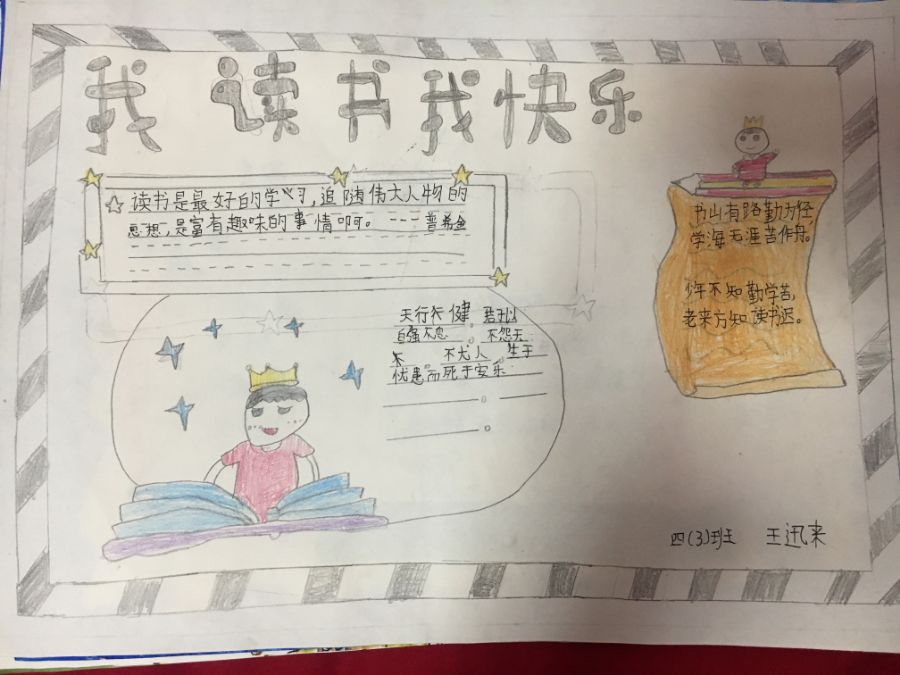 我读书我快乐
读书是最好的学习,追随伟大人物的
思想,是富有趣味的事情啊。---普希金
书山有路勤为径,
学海无涯苦作舟。
少年不知勤学苦,
老来方知读书迟。
天行健 君子以
自强不息。不怨天
不尤人。生于
忧患而死于安乐
四(3)班 王迅来